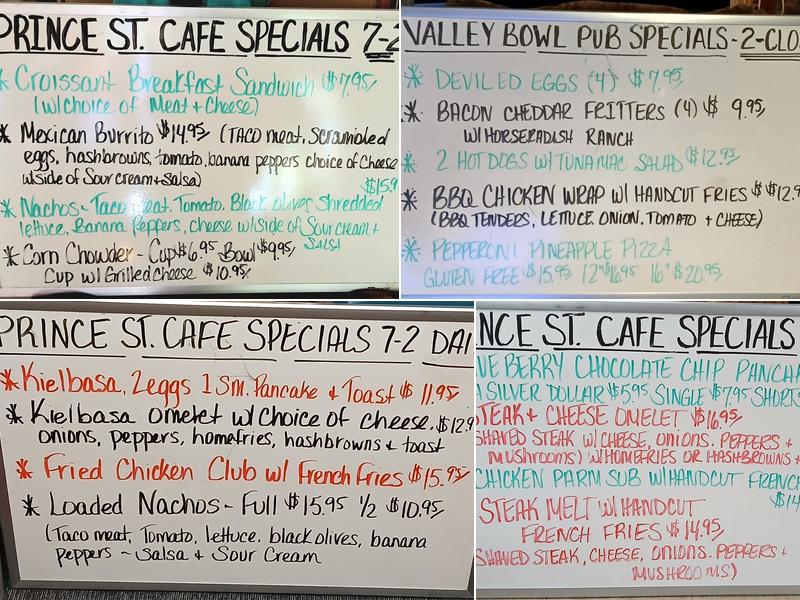 PRINCE ST. CAFE SPECIALS 7-2
* Croissant Breakfast Sandwich $7.95/
(w/choice of Meat + Cheese)
* Mexican Burrito $14.95/ (TACO meat, Scrambled
eggs, hashbrowns, tomato, banana peppers choice of Cheese
w/side of Sour cream + Salsa)
$15.9
* Nachos - Taco Meat, Tomato, Black olives, Shredded
lettuce, Banana Peppers, cheese w/side of Sour cream +
SALSA
* Corn Chowder - Cup $6.95 Bowl $9.95/
Cup w/ Grilled cheese $10.95/
VALLEY BOWL PUB SPECIALS - 2-CLO
* DEVILED EGGS (4) $7.95/
* BACON CHEDDAR FRITTERS (4) $ 9.95/
W/ HORSERADISH RANCH
* 2 HOTDOGS W/ TUNA MAC SALAD $12.95/
* BBQ CHICKEN WRAP W/ HANDCUT FRIES $12.9
(BBQ TENDERS, LETTUCE, ONION, TOMATO + CHEESE)
* PEPPERONI PINEAPPLE PIZZA
GLUTEN FREE $15.95 12" $16.95 16" $20.95/
PRINCE ST. CAFE SPECIALS 7-2 DAI
* Kielbasa, 2eggs 1 Sm. Pancake + Toast $ 11.95/
* Kielbasa Omelet w/ Choice of cheese, $12.9
onions, peppers, homefries, hashbrowns + toast
* Fried Chicken Club w/ French Fries $15.95/
* Loaded Nachos - Full $15.95 1/2 $10.95/
(Taco meat, Tomato, lettuce, black olives, banana
peppers ~ Salsa + Sour Cream
NCE ST. CAFE SPECIALS
UEBERRY CHOCOLATE CHIP PANCA
SILVER DOLLAR $5.95 SINGLE $7.95 SHORTS
STEAK + CHEESE OMELET $16.95/
SHAVED STEAK W/ CHEESE, ONIONS, PEPPERS +
MUSHROOMS) W/ HOMEFRIES OR HASHBROWNS +
CHICKEN PARM SUB W/ HANDCUT FRENCH
$14
STEAK MELT W/ HANDCUT
FRENCH FRIES $14.95/
SHAVED STEAK, CHEESE, ONIONS, PEPPERS +
MUSHROOMS)